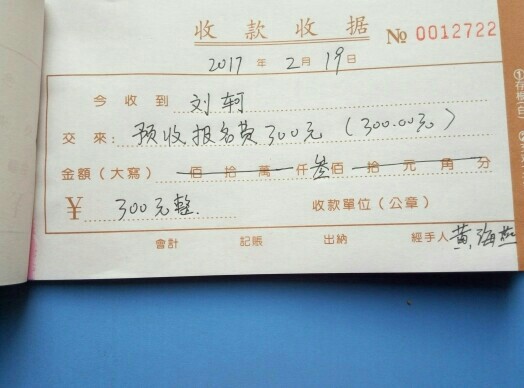 收款收据 № 0012722
2017 年 2 月 19 日
今收到 刘轲
交来: 预收报名费300元(300.00元)
金額(大寫) 佰拾萬仟叁佰拾元角分
¥ 300元整. 收款單位(公章)
會計 記賬 出納 經手人 黄海燕